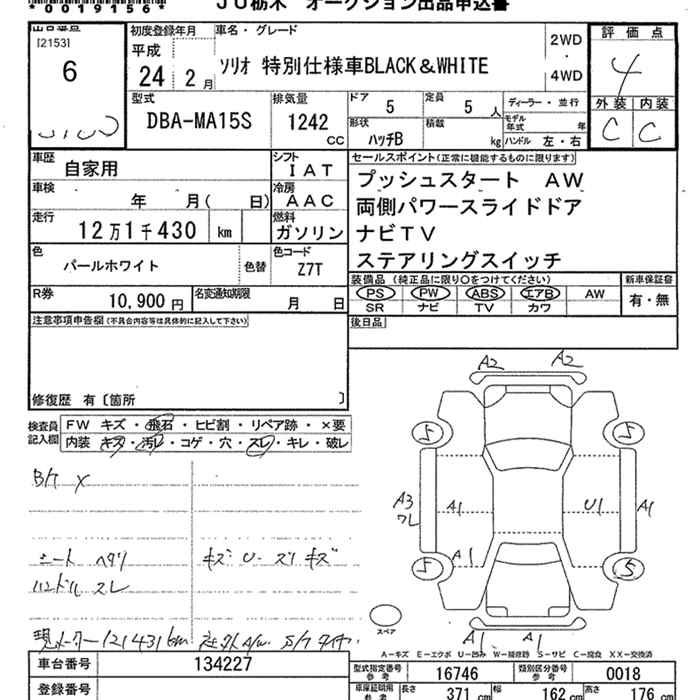 *0019156*
JU栃木 オークション出品申込書
出品番号
[2153]
6
初度登録年月
平成
24 2月
車名・グレード
ソリオ 特別仕様車BLACK&WHITE
2WD
・
4WD
評価点
4
外装 内装
C C
型式
DBA-MA15S
排気量
1242
cc
ドア
5
定員
5人
形状
ハッチB
積載
kg
ディーラー・並行
モデル年式 年
ハンドル 左・右
車歴
自家用
シフト
IAT
車検
年 月( 日)
冷房
AAC
走行
12万1千430 km
燃料
ガソリン
色
パールホワイト
色替
色コード
Z7T
R券
10,900円
名変通知期限
月 日
セールスポイント(正常に機能するものに限ります)
プッシュスタート AW
両側パワースライドドア
ナビTV
ステアリングスイッチ
装備品 (純正品に限り○をつけてください)
PS PW ABS エアB AW
SR ナビ TV カワ
新車保証書
有・無
後日品
注意事項申告欄(不具合内容等は具体的に記入して下さい)
修復歴 有〔箇所 〕
検査員記入欄
FW キズ・飛石・ヒビ割・リペア跡・×要
内装・キズ・汚レ・コゲ・穴・スレ・キレ・破レ
B/ケ X
シート ヘタリ
ハンドル スレ
キズ U- スリキズ
現メーター121431km 社外A/W S/Tタイヤ
A2 A2
5 5
A3
ワレ
A1 U1 A1
A1
5 5
スペア
A1 A1
A-キズ E-エクボ U-凹み W-補修跡 S-サビ C-腐食 XX-交換済
車台番号
134227
登録番号
型式指定番号
参考
16746
類別区分番号
参考
0018
車庫証明用
参考
長さ
371 cm
幅
162 cm
高さ
176 cm